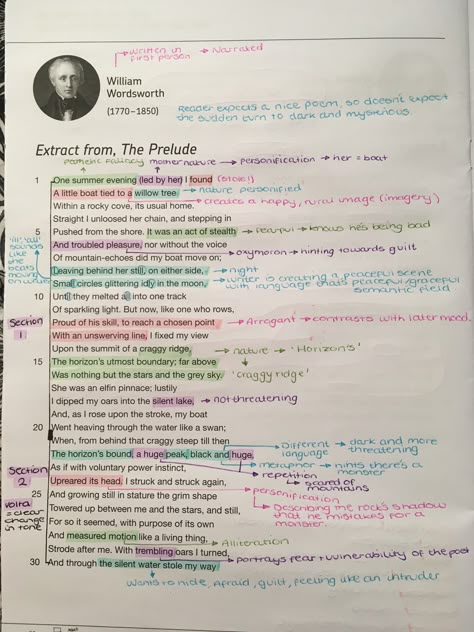 written in first person → Narrated
William
Wordsworth
(1770–1850)
Reader expects a nice poem, so doesn't expect
the sudden turn to dark and mysterious.
Extract from, The Prelude
pathetic fallacy mother nature → personification → her = boat
1 One summer evening (led by her) I found (stole!)
A little boat tied to a willow tree → nature personified
→ creates a happy, rural image (imagery)
Within a rocky cove, its usual home.
Straight I unloosed her chain, and stepping in
5 Pushed from the shore. It was an act of stealth → fearful → knows he's being bad
And troubled pleasure, nor without the voice → oxymoron → hinting towards guilt
Of mountain-echoes did my boat move on;
Leaving behind her still, on either side, → night
Small circles glittering idly in the moon, → writer is creating a peaceful scene
with language thats peaceful/graceful
semantic field
'ill', 'all'
sounds
like
the
boats
moving
on water
10 Until they melted all into one track
Of sparkling light. But now, like one who rows,
Section 1
Proud of his skill, to reach a chosen point → Arrogant → contrasts with later mood.
With an unswerving line, I fixed my view
Upon the summit of a craggy ridge, → nature → 'Horizon's'
15 The horizon's utmost boundary; far above 'craggy ridge'
Was nothing but the stars and the grey sky.
She was an elfin pinnace; lustily
I dipped my oars into the silent lake, → not threatening
And, as I rose upon the stroke, my boat
20 Went heaving through the water like a swan;
When, from behind that craggy steep till then
The horizon's bound, a huge peak, black and huge,
Different language → dark and more threatening
metaphor → hints there's a monster
repetition → scared of mountains
Section 2
As if with voluntary power instinct,
Upreared its head. I struck and struck again,
25 And growing still in stature the grim shape
personification
→ Describing the rock's shadow
that he mistakes for a
monster.
Volta
= clear
change
in tone
Towered up between me and the stars, and still,
For so it seemed, with purpose of its own
And measured motion like a living thing, → Alliteration
Strode after me. With trembling oars I turned,
→ portrays fear + vulnerability of the poet
30 And through the silent water stole my way
wants to hide, afraid, guilt, feeling like an intruder